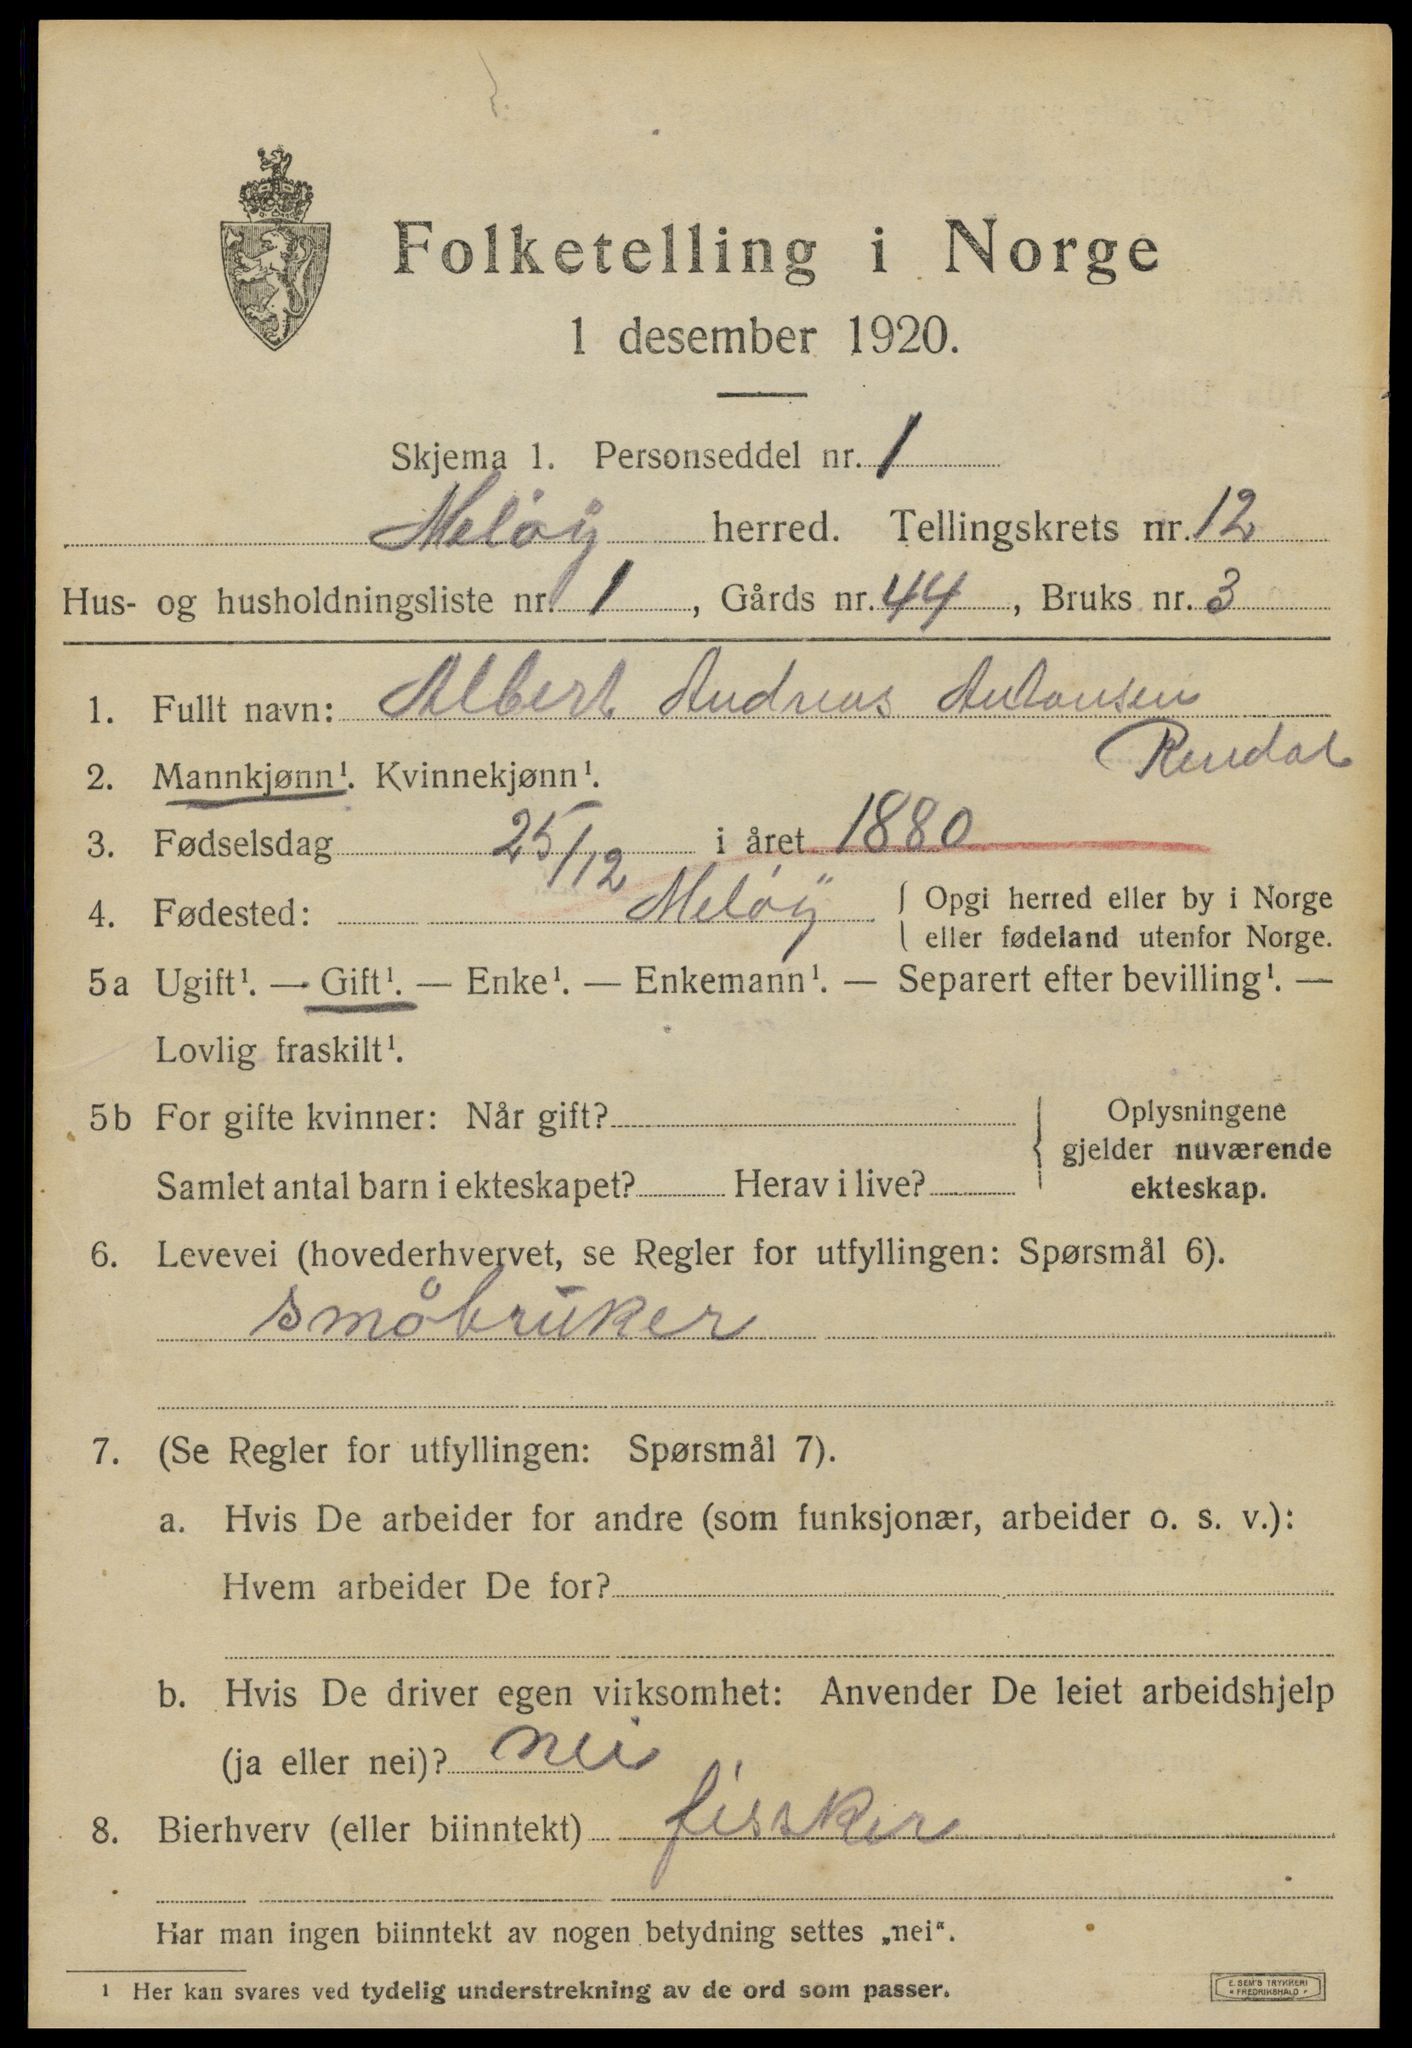 Folketelling i Norge
1 desember 1920.
Skjema 1. Personseddel nr. 1
Meløy herred. Tellingskrets nr. 12
Hus- og husholdningsliste nr. 1, Gårds nr. 44, Bruks nr. 3
1. Fullt navn: Albert Andreas Antonsen
Rendal
2. Mannkjønn¹. Kvinnekjønn¹.
3. Fødselsdag 25/12 i året 1880
4. Fødested: Meløy { Opgi herred eller by i Norge
eller fødeland utenfor Norge.
5a Ugift¹. — Gift¹. — Enke¹. — Enkemann¹. — Separert efter bevilling¹. —
Lovlig fraskilt¹.
5b For gifte kvinner: Når gift?
Samlet antal barn i ekteskapet? Herav i live?
Oplysningene
gjelder nuværende
ekteskap.
6. Levevei (hovederhvervet, se Regler for utfyllingen: Spørsmål 6).
småbruker
7. (Se Regler for utfyllingen: Spørsmål 7).
a. Hvis De arbeider for andre (som funksjonær, arbeider o. s. v.):
Hvem arbeider De for?
b. Hvis De driver egen virksomhet: Anvender De leiet arbeidshjelp
(ja eller nei)? nei
8. Bierhverv (eller biinntekt) fissker
Har man ingen biinntekt av nogen betydning settes „nei“.
¹ Her kan svares ved tydelig understrekning av de ord som passer.
E. SEM'S TRYKKERI
FREDRIKSHALD